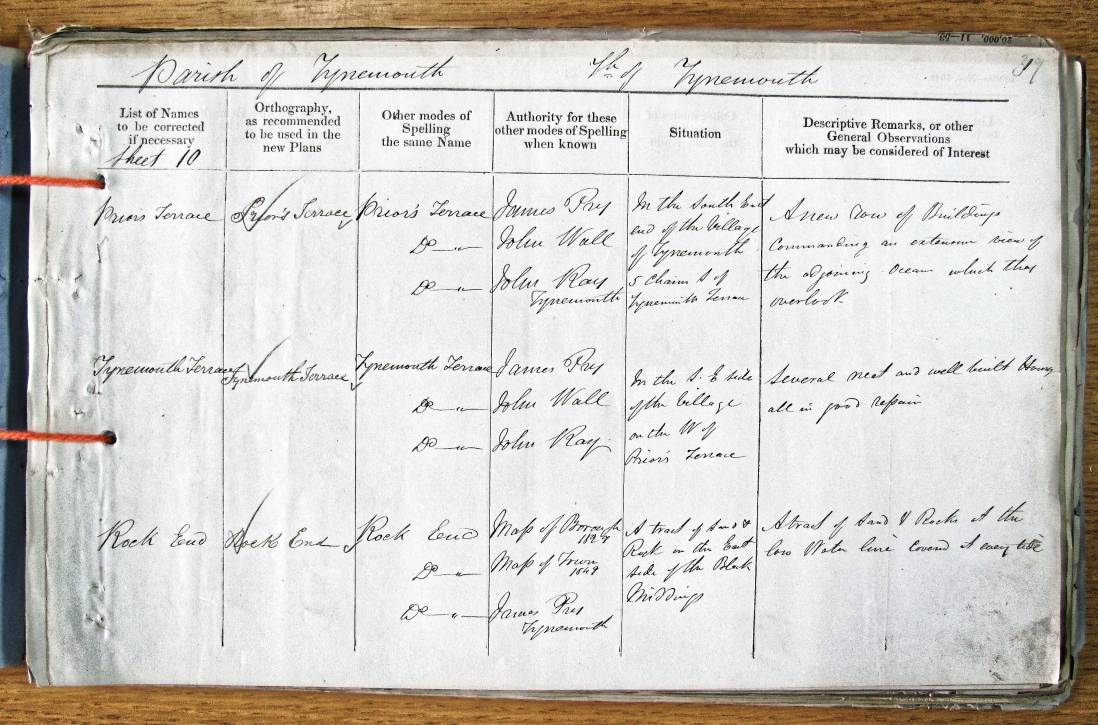 Parish of Tynemouth Tp of Tynemouth 39
List of Names
to be corrected
if necessary
Sheet 10
Orthography,
as recommended
to be used in the
new Plans
Other modes of
Spelling
the same Name
Authority for these
other modes of Spelling
when known
Situation
Descriptive Remarks, or other
General Observations
which may be considered of Interest
Prior's Terrace
Prior's Terrace
Prior's Terrace
Do "
Do "
James Pry
John Wall
John Ray
Tynemouth
In the South East
end of the Village
of Tynemouth
5 Chains S of
Tynemouth Terrace
A new row of Buildings
Commanding an extensive view of
the adjoining Ocean which they
overlook
Tynemouth Terrace
Tynemouth Terrace
Tynemouth Terrace
Do "
Do "
James Pry
John Wall
John Ray
In the S. E side
of the Village
on the W of
Prior's Terrace
Several neat and well built Houses
all in good repair
Rock End
Rock End
Rock End
Do "
Do "
Map of Borough
Map of Town
1849
James Pry
Tynemouth
A tract of Sand &
Rock on the East
side of the Black
Middings
A tract of Sand & Rocks at the
low Water line Covered at every tide